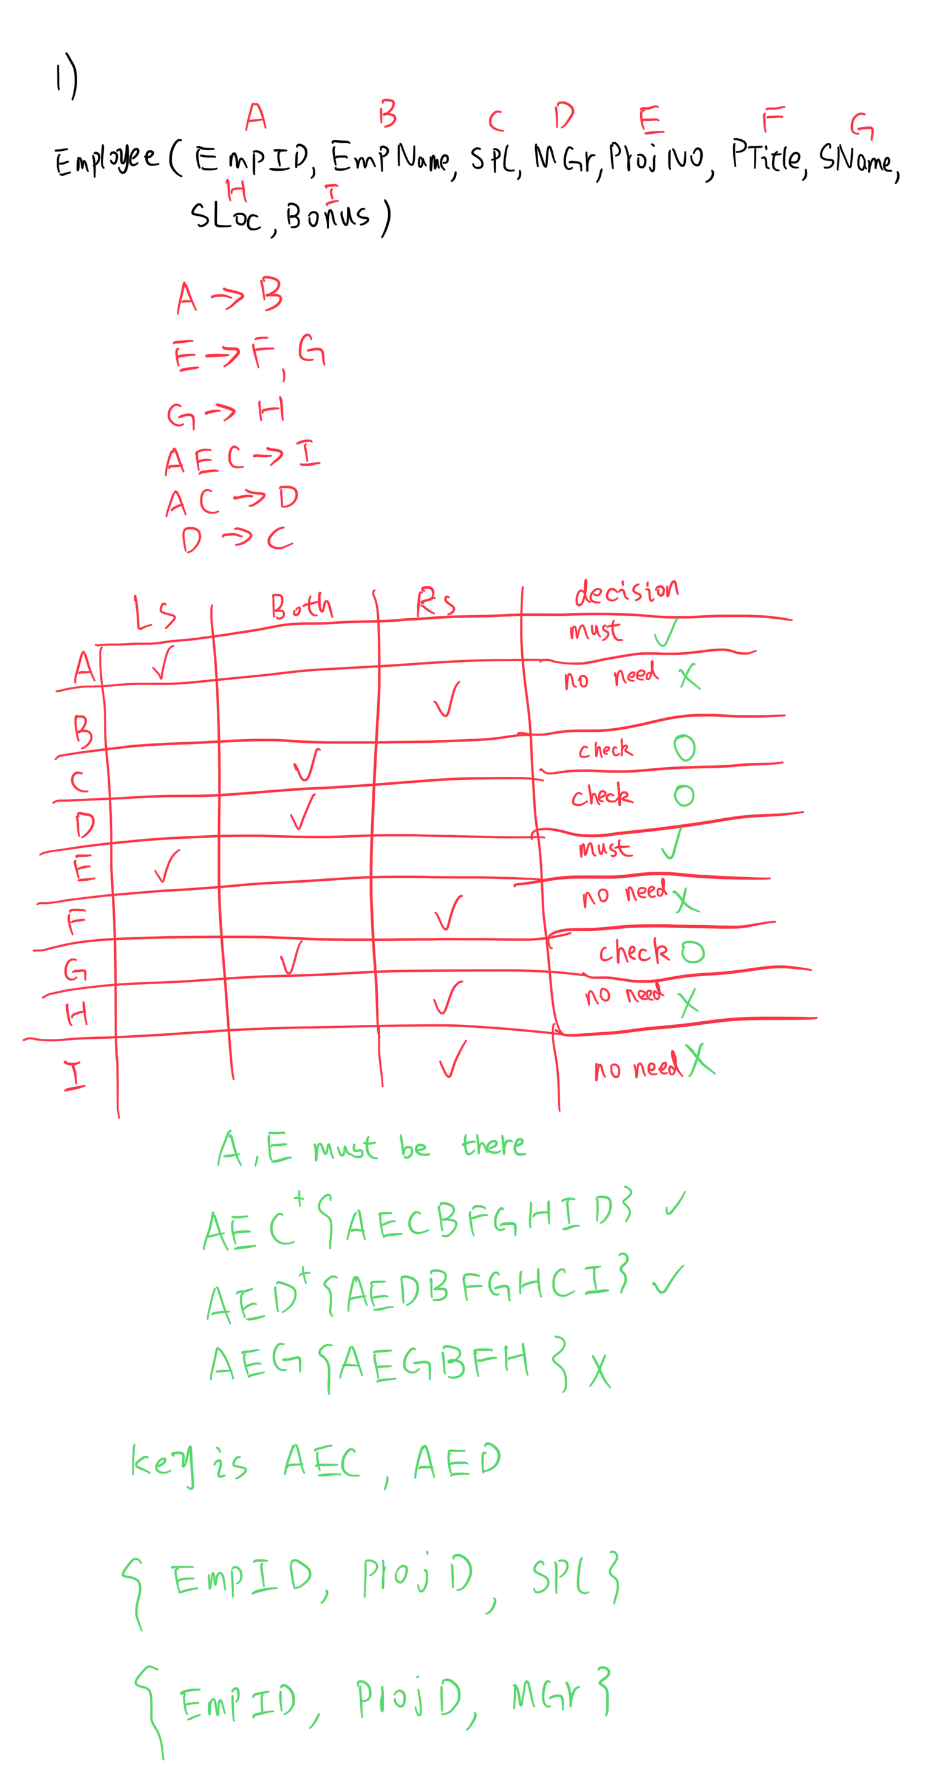 1)
A B C D E F G
Employee ( EmpID, EmpName, SPL, MGr, ProjNO, PTitle, SName,
H I
SLoc, Bonus )
A → B
E → F, G
G → H
A E C → I
A C → D
D → C
Ls Both Rs decision
A ✓ must ✓
B ✓ no need X
C ✓ check O
D ✓ check O
E ✓ must ✓
F ✓ no need X
G ✓ check O
H ✓ no need X
I ✓ no need X
A, E must be there
AEC⁺ { AECBFGHID } ✓
AED⁺ { AEDBFGHCI } ✓
AEG { AEGBFH } X
key is AEC, AED
{ EmpID, ProjD, SPL }
{ EmpID, ProjD, MGr }